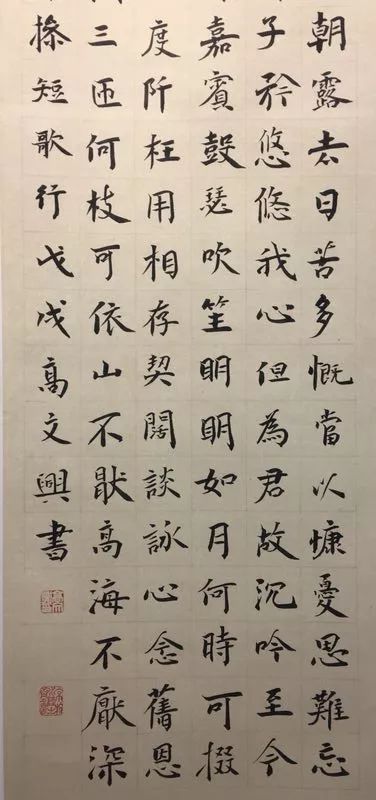 朝露去日苦多慨當以慷憂思難忘
子衿悠悠我心但為君故沉吟至今
嘉賓鼔瑟吹笙明明如月何時可掇
度阡枉用相存契闊談詠心念舊恩
三匝何枝可依山不猒高海不厭深
操短歌行戊戌高文興書